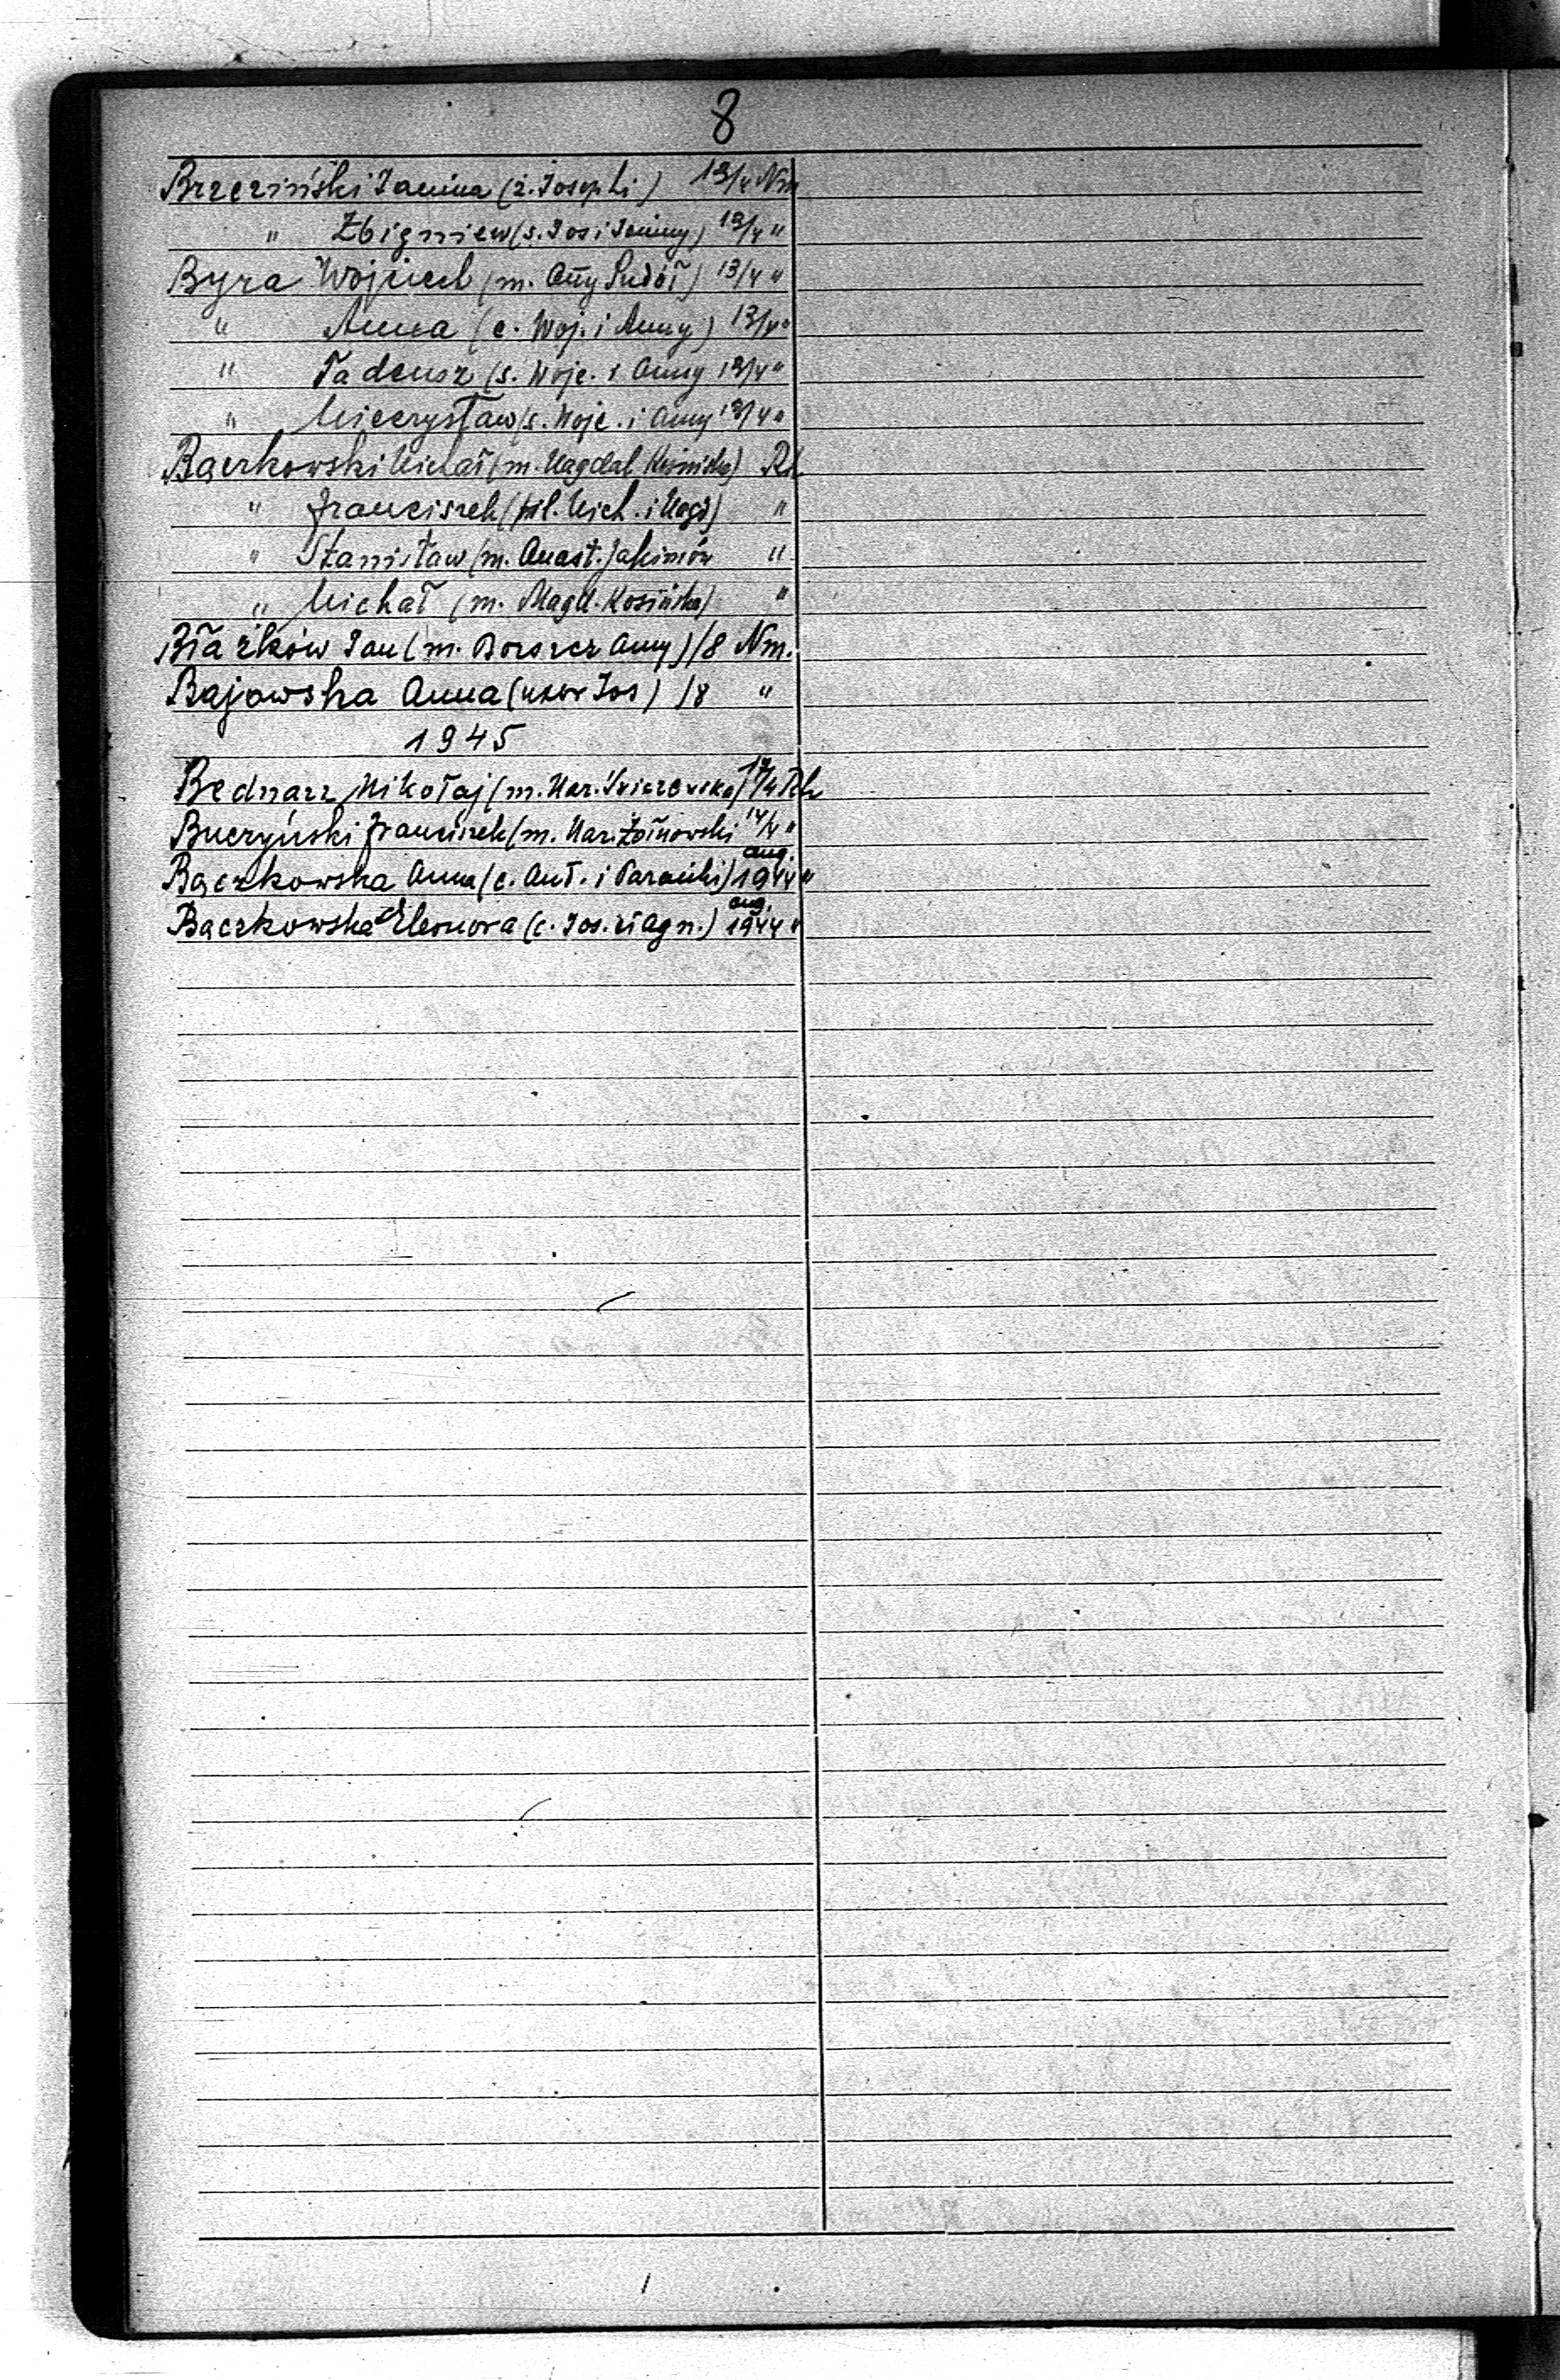 8
Brzeziński Janina (ż. Josephi) 13/4 Nm
" Zbigniew (s. Jos i Janiny) 13/4 "
Byra Wojciech (m. Anny Sudoł) 13/4 "
" Anna (c. Woj. i Anny) 13/4 "
" Tadeusz (s. Wojc. i Anny 13/4 "
" Mieczysław (s. Wojc. i Anny 13/4 "
Bączkowski Michał (m. Magdal Kosińska) Rh
" Franciszek (fil. Mich. i Magd) "
" Stanisław (m. Anast. Jakimów "
" Michał (m. Magd. Kosińska) "
Błażków Jan (m.Borszcz Anny) /8 Nm.
Bajowska Anna (uxor Jos) /8 "
1945
Bednarz Mikołaj (m. Mar. 17/4 Rh
Buczyński Franciszek (m. Mar. Żołnowski 14/4 "
Bączkowska Anna (c. Ant. i Parańki) aug. 1944 "
Bączkowska Eleonora (c. Jos. et Agn.) aug. 1944 "